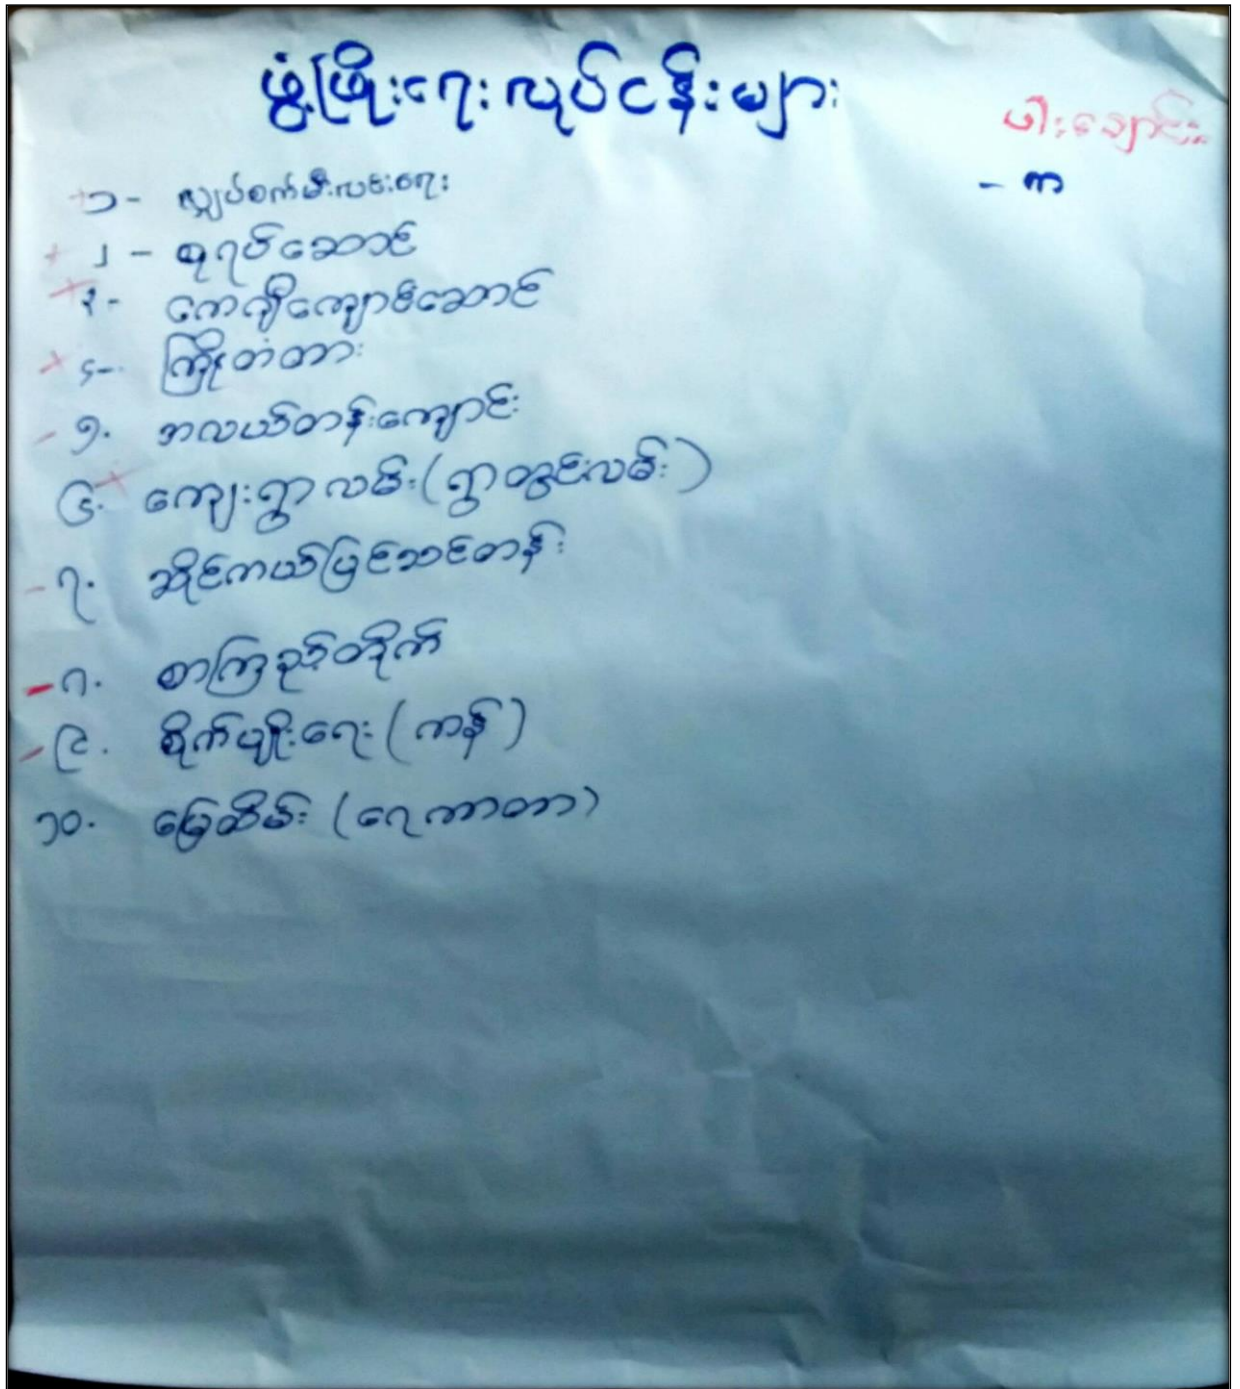 ဖွံ့ဖြိုးရေးလုပ်ငန်းများ
ဖါးချောင်း
- က
၁- လျှပ်စက်မီးလင်းရေး
၂ - စုရပ်ဆောင်
၃- ကေဂျီကျောင်းဆောင်
၄- ကြိုးတံတား
၅. အလယ်တန်းကျောင်း
၆. ကျေးရွာလမ်း (ရွာတွင်းလမ်း)
၇. ဆိုင်ကယ်ပြင်သင်တန်း
၈. စာကြည့်တိုက်
၉. စိုက်ပျိုးရေး (ကန်)
၁၀. မြေထိမ်း (ရေကာတာ)